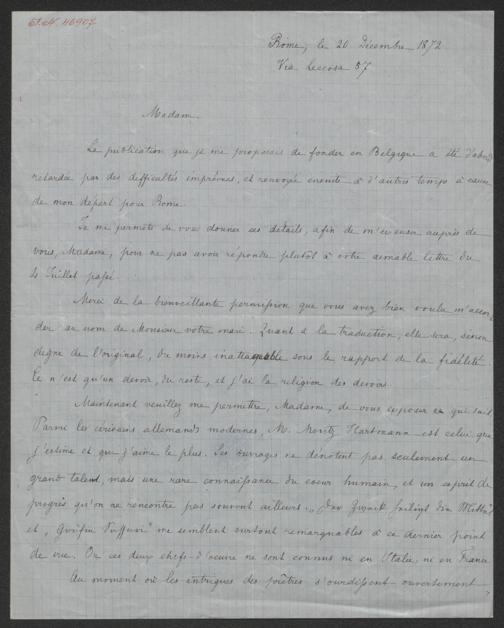 Rome, le 20 Décembre 1872
Via Leccosa 57
Madame
La publication que je me proposais de fonder en Belgique a été d'abord
retardée par des difficultés imprévues, et renvoyée ensuite à d'autres temps à cause
de mon départ pour Rome.
Je me permets de vous donner ces détails, afin de m'excuser auprès de
vous, Madame, pour ne pas avoir répondu plutôt à votre aimable lettre du
4 Juillet passé.
Merci de la bienveillante permission que vous avez bien voulu m'accor-
der au nom de Monsieur votre mari. Quant à la traduction, elle sera, sinon
digne de l'original, du moins inattaquable sous le rapport de la fidélité.
Ce n'est qu'un devoir, du reste, et j'ai la religion des devoirs.
Maintenant veuillez me permettre, Madame, de vous exposer ce qui suit
Parmi les écrivains allemands modernes, M. Moritz Hartmann est celui que
j'estime et que j'aime le plus. Ses ouvrages ne dénotent pas seulement un
grand talent, mais une rare connaissance du coeur humain, et un esprit de
progrès qu'on ne rencontre pas souvent ailleurs. Der Zweck heiligt die Mittel"
et, me semblent surtout remarquables à ce dernier point
de vue. Or ces deux chefs-d'oeuvre ne sont connus ni en Italie, ni en France
Au moment où les intrigues des prêtres s'ourdissent ouvertement